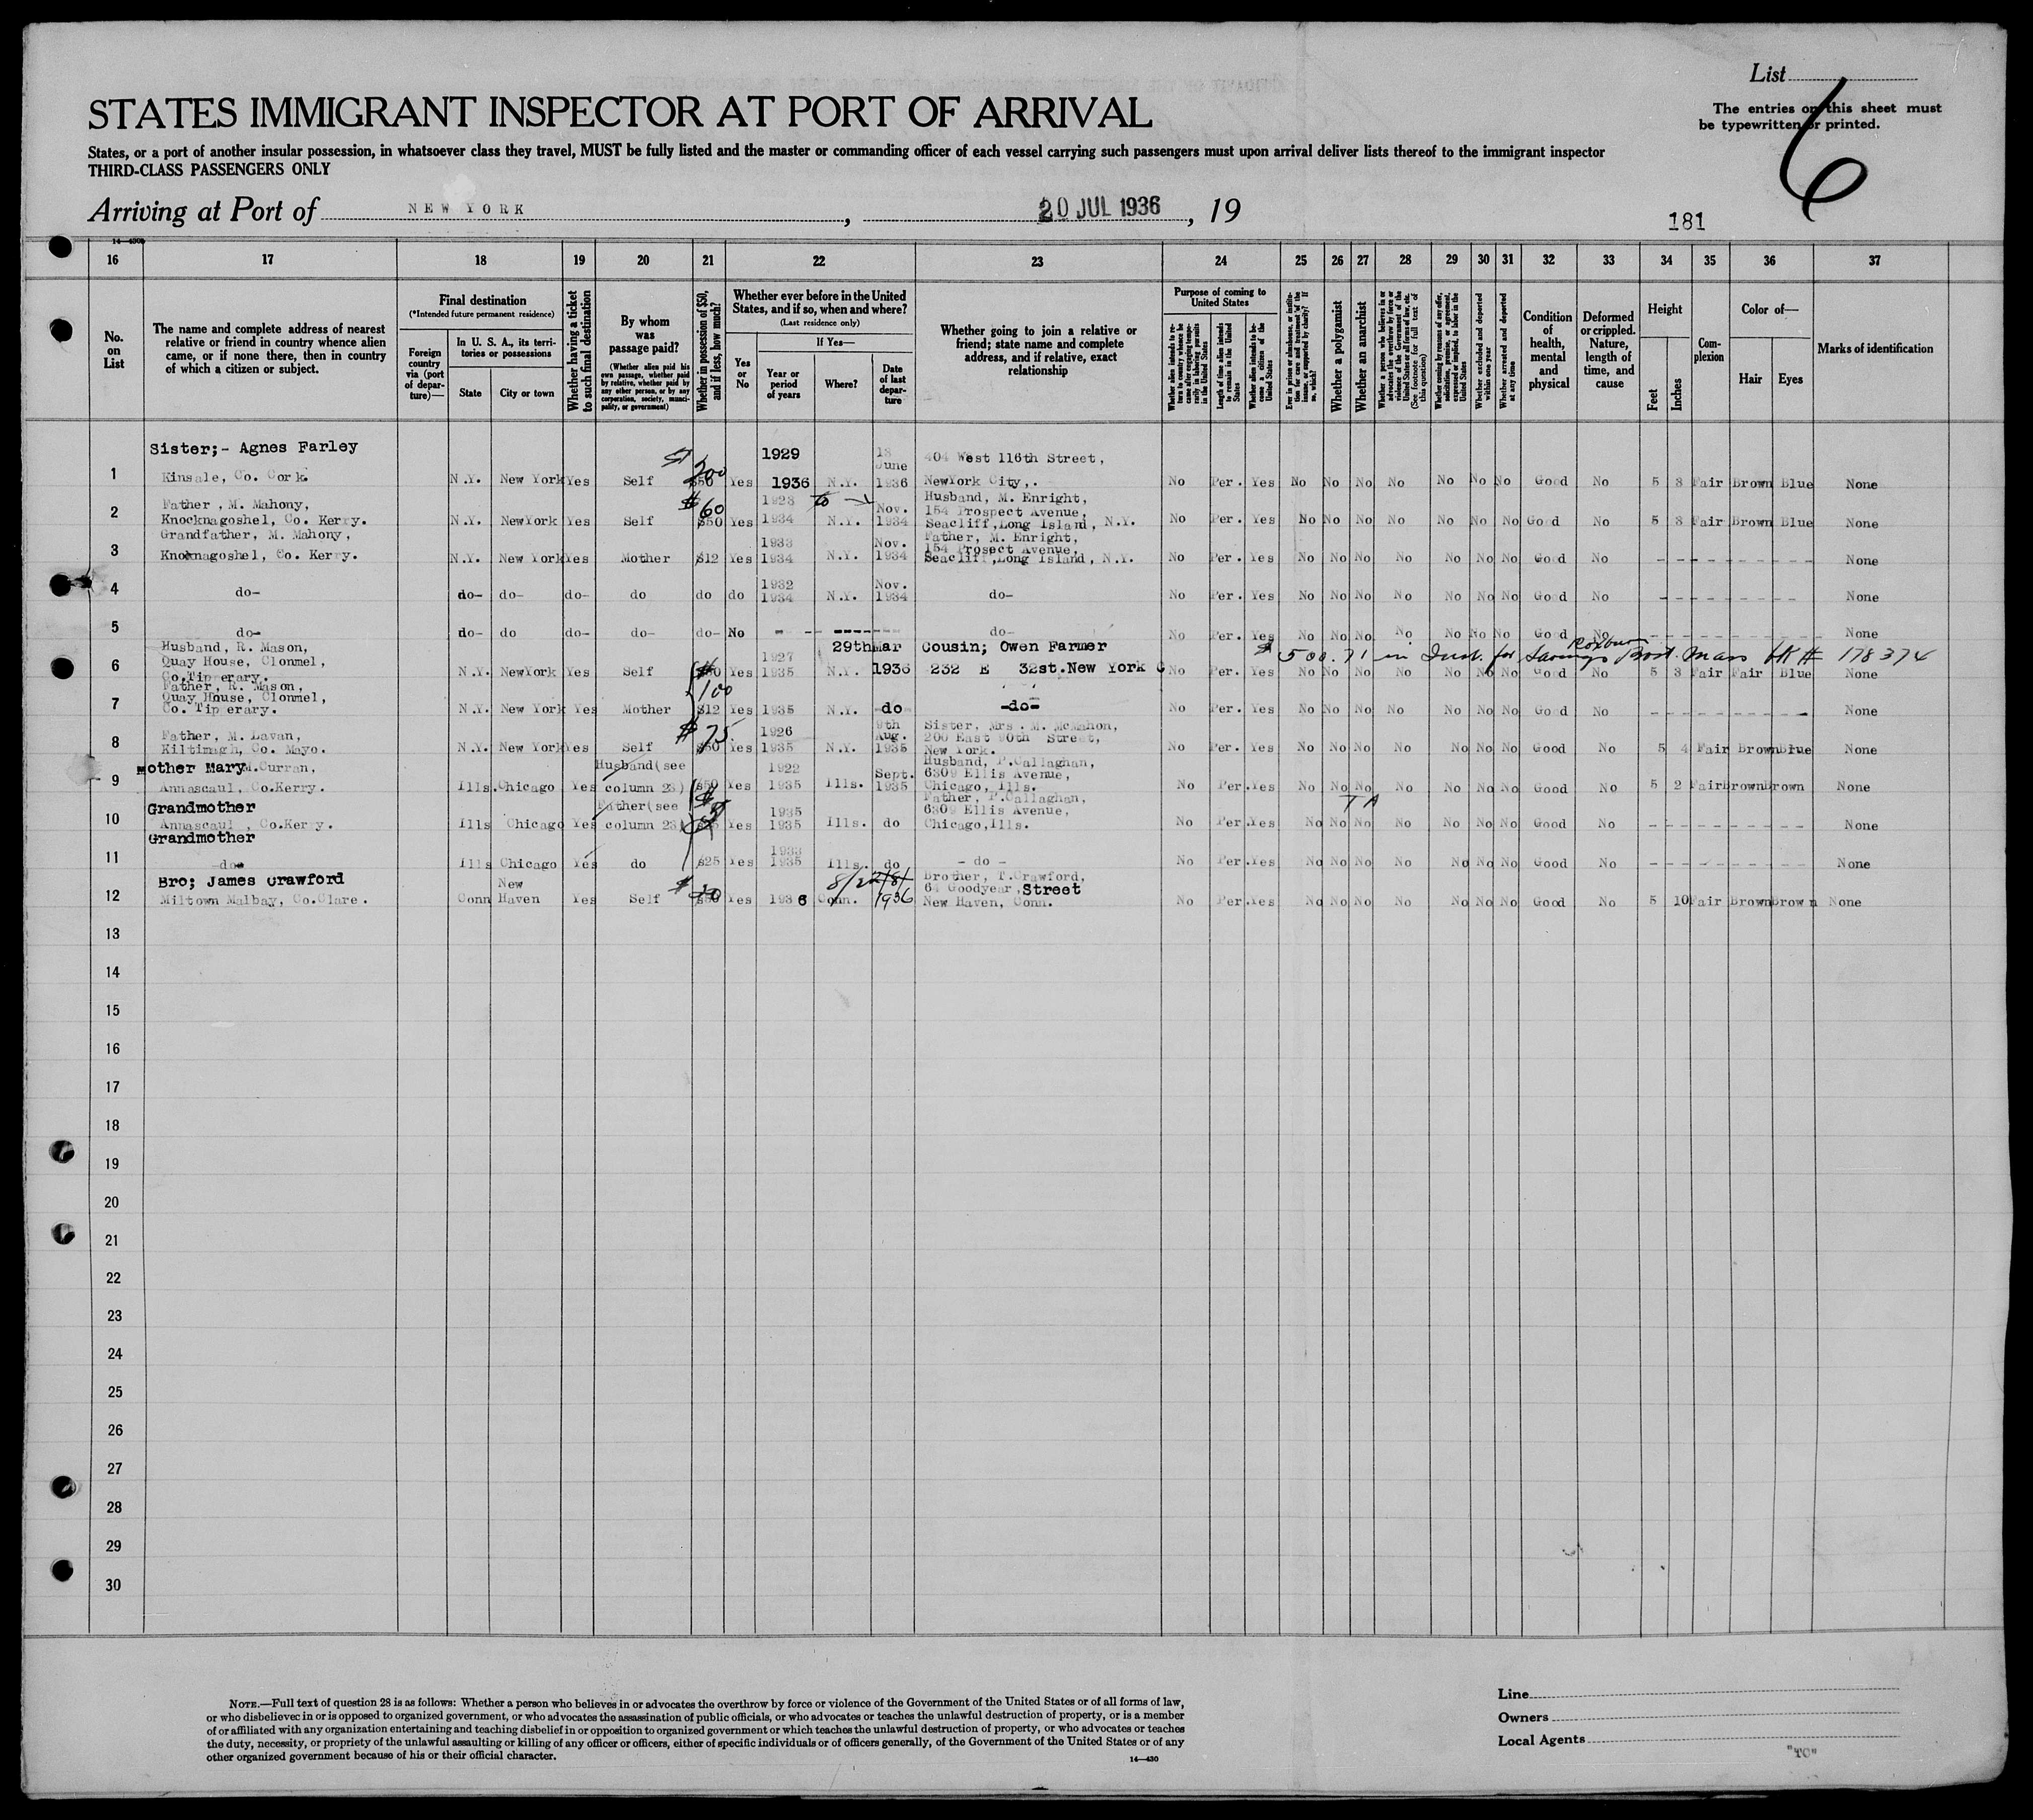 List
The entries on this sheet must
be typewritten or printed.
6
STATES IMMIGRANT INSPECTOR AT PORT OF ARRIVAL
States, or a port of another insular possession, in whatsoever class they travel, MUST be fully listed and the master or commanding officer of each vessel carrying such passengers must upon arrival deliver lists thereof to the immigrant inspector
THIRD-CLASS PASSENGERS ONLY
Arriving at Port of NEW YORK, 20 JUL 1936, 19
181
16 17 18 19 20 21 22 23 24 25 26 27 28 29 30 31 32 33 34 35 36 37
No. on List
The name and complete address of nearest relative or friend in country whence alien came, or if none there, then in country of which a citizen or subject.
Final destination
(*Intended future permanent residence)
Foreign country via (port of departure)—
In U. S. A., its territories or possessions
State
City or town
Whether having a ticket to such final destination
By whom was passage paid?
(Whether alien paid his own passage, whether paid by relative, whether paid by any other person, or by any corporation, society, municipality, or government)
Whether in possession of $50, and if less, how much?
Whether ever before in the United States, and if so, when and where?
(Last residence only)
Yes or No
If Yes—
Year or period of years
Where?
Date of last departure
Whether going to join a relative or friend; state name and complete address, and if relative, exact relationship
Purpose of coming to United States
Length of time alien intends to remain in the United States
Whether alien intends to become a citizen of the United States
Whether a polygamist
Whether an anarchist
Whether excluded and deported within one year
Whether arrested and deported at any time
Condition of health, mental and physical
Deformed or crippled. Nature, length of time, and cause
Height
Feet
Inches
Complexion
Color of—
Hair
Eyes
Marks of identification
Sister;- Agnes Farley 1929 404 West 116th Street,
1 Kinsale, Co. Cork. N.Y. New York Yes Self 200 $50 Yes 1936 N.Y. June 1936 NewYork City,. No Per. Yes No No No No No No No Good No 5 3 Fair Brown Blue None
Father, M. Mahony, $60 1928 to Nov. Husband, M. Enright,
2 Knocknagoshel, Co. Kerry. N.Y. NewYork Yes Self $50 Yes 1934 N.Y. 1934 154 Prospect Avenue, Seacliff,Long Island, N.Y. No Per. Yes No No No No No No No Good No 5 3 Fair Brown Blue None
Grandfather, M. Mahony, 1933 Nov. Father, M. Enright,
3 Knocknagoshel, Co. Kerry. N.Y. New York Yes Mother $12 Yes 1934 N.Y. 1934 154 Prosect Avenue, Seacliff,Long Island, N.Y. No Per. Yes No No No No No No No Good No - - - - - - - - None
4 do- do- do- do- do do do 1932 1934 N.Y. Nov. 1934 do- No Per. Yes No No No No No No No Good No - - - - - - - - None
5 do- do- do do- do- do- No - - - ------ do- No Per. Yes No No No No No No No Good No - - - - - - - - None
Husband, R. Mason, 29thMar Cousin; Owen Farmer
$ 500.71 in Inst. for Savings Roxbury Bost. Mass bk # 178374
6 Quay House, Clonmel, Co.Tipperary. N.Y. NewYork Yes Self $50 Yes 1927 1935 N.Y. 1936 232 E 32st.New York C No Per. Yes No No No No No No No Good No 5 3 Fair Fair Blue None
Father, R. Mason, 100
7 Quay House, Clonmel, Co. Tipperary. N.Y. New York Yes Mother $12 Yes 1935 N.Y. do -do- No Per. Yes No No No No No No No Good No - - - - - - - - None
Father, M. Lavan, $75. 1926 9th Aug. Sister, Mrs. M. McMahon,
8 Kiltimagh, Co. Mayo. N.Y. New York Yes Self $50 Yes 1935 N.Y. 1935 200 East 90th Street, New York. No Per. Yes No No No No No No No Good No 5 4 Fair Brown Blue None
mother Mary M.Curran, Husband(see 1922 Sept. Husband, P.Callaghan,
9 Annascaul, Co.Kerry. Ills. Chicago Yes column 23) $50 Yes 1935 Ills. 1935 6309 Ellis Avenue, Chicago, Ills. No Per. Yes No No No No No No No Good No 5 2 Fair Brown Brown None
Grandmother Father(see 1935 Father, P.Callaghan, T A
10 Annascaul, Co.Kerry. Ills Chicago Yes column 23) Yes 1935 Ills. do 6309 Ellis Avenue, Chicago,Ills. No Per. Yes No No No No No No No Good No - - - - - - - - None
Grandmother 1933
11 -do- Ills Chicago Yes do $25 Yes 1935 Ills. do - do - No Per. Yes No No No No No No No Good No - - - - - - - - None
Bro; James Crawford New Brother, T.Crawford,
12 Miltown Malbay, Co.Clare. Conn Haven Yes Self $50 Yes 1936 Conn. 1936 64 Goodyear, Street New Haven, Conn. No Per. Yes No No No No No No No Good No 5 10 Fair Brown brown None
13
14
15
16
17
18
19
20
21
22
23
24
25
26
27
28
29
30
NOTE.—Full text of question 28 is as follows: Whether a person who believes in or advocates the overthrow by force or violence of the Government of the United States or of all forms of law,
or who disbelieves in or is opposed to organized government, or who advocates the assassination of public officials, or who advocates or teaches the unlawful destruction of property, or is a member
of or affiliated with any organization entertaining and teaching disbelief in or opposition to organized government or which teaches the unlawful destruction of property, or who advocates or teaches
the duty, necessity, or propriety of the unlawful assaulting or killing of any officer or officers, either of specific individuals or of officers generally, of the Government of the United States or of any
other organized government because of his or their official character.
14—430
Line
Owners
Local Agents
"TC"